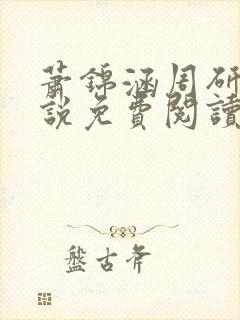 萧錦涵周研
説免費閱讀
盤古斧